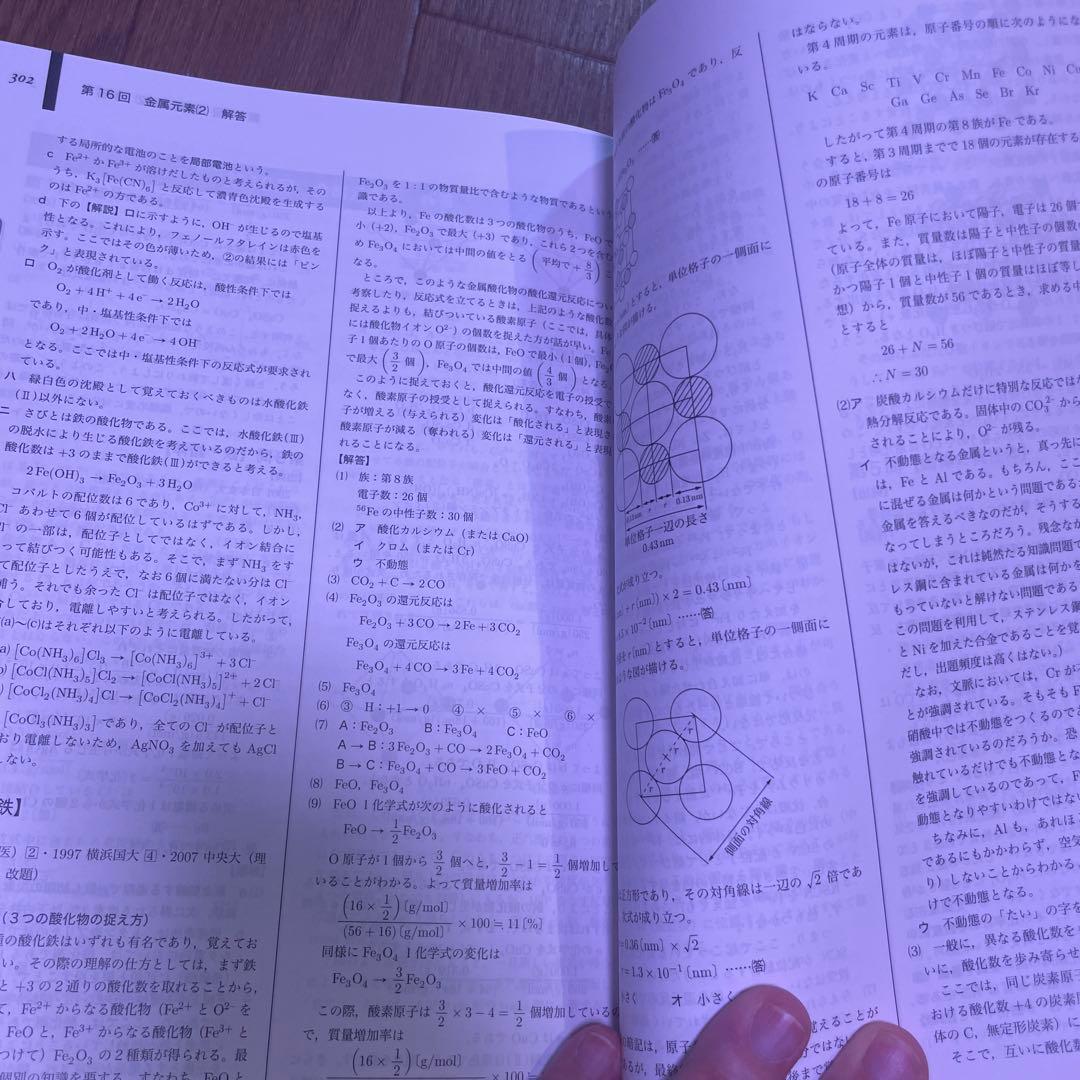 302
第16回 金属元素(2) 解答
する局所的な電池のことを局部電池という。
c Fe²⁺ か Fe³⁺ が溶けだしたものと考えられるが，その
うち，K₃[Fe(CN)₆] と反応して濃青色沈殿を生成する
のは Fe²⁺ の方である。
d 下の【解説】ロに示すように，OH⁻ が生じるので塩基
性となる。これにより，フェノールフタレインは赤色を
示す。ここではその色が薄いため，②の結果には「ピン
ク」と表現されている。
ロ O₂ が酸化剤として働く反応は，酸性条件下では
O₂ + 4H⁺ + 4e⁻ → 2H₂O
であり，中・塩基性条件下では
O₂ + 2H₂O + 4e⁻ → 4OH⁻
となる。ここでは中・塩基性条件下の反応式が要求され
ている。
ハ 緑白色の沈殿として覚えておくべきものは水酸化鉄
(Ⅱ)以外にない。
ニ さびとは鉄の酸化物である。ここでは，水酸化鉄(Ⅲ)
の脱水により生じる酸化鉄を考えているのだから，鉄の
酸化数は +3 のままで酸化鉄(Ⅲ)ができると考える。
2Fe(OH)₃ → Fe₂O₃ + 3H₂O
コバルトの配位数は6であり，Co³⁺ に対して，NH₃，
Cl⁻ あわせて6個が配位しているはずである。しかし，
の一部は，配位子としてではなく，イオン結合に
って結びつく可能性もある。そこで，まず NH₃ をす
て配位子としたうえで，なお6個に満たない分は Cl⁻
補う。それでも余った Cl⁻ は配位子ではなく，イオン
合しており，電離しやすいと考えられる。したがって，
(a)～(c)はそれぞれ以下のように電離している。
a) [Co(NH₃)₆]Cl₃ → [Co(NH₃)₆]³⁺ + 3Cl⁻
) [CoCl(NH₃)₅]Cl₂ → [CoCl(NH₃)₅]²⁺ + 2Cl⁻
) [CoCl₂(NH₃)₄]Cl → [CoCl₂(NH₃)₄]⁺ + Cl⁻
[CoCl₃(NH₃)₃] であり，全ての Cl⁻ が配位子と
おり電離しないため，AgNO₃ を加えても AgCl
しない。
鉄】
医) ②・1997 横浜国大 ④・2007 中央大（理
改題）
（3つの酸化物の捉え方）
種の酸化鉄はいずれも有名であり，覚えてお
い。その際の理解の仕方としては，まず鉄
と +3 の2通りの酸化数を取れることから，
て，Fe²⁺ からなる酸化物（Fe²⁺ と O²⁻ を
FeO と，Fe³⁺ からなる酸化物（Fe³⁺ と
つけて）Fe₂O₃ の2種類が得られる。最
個別の知識を要する。すなわち，FeO と
Fe₂O₃ を 1:1 の物質量比で含むような物質であるという
識である。
以上より，Fe の酸化数は3つの酸化物のうち，FeO で
小 (+2)，Fe₂O₃ で最大 (+3) であり，これら2つを含む
め Fe₃O₄ においては中間の値をとる（平均で +8/3）こ
ところで，このような金属酸化物の酸化還元反応につい
考察したり，反応式を立てるときは，上記のような酸化数
捉えるよりも，結びついている酸素原子（ここでは，具体
には酸化物イオン O²⁻）の個数を捉えた方が話が早い。Fe
子1個あたりの O 原子の個数は，FeO で最小 (1個)，Fe₂O
で最大 (3/2 個)，Fe₃O₄ では中間の値 (4/3 個) となる。
このように捉えておくと，酸化還元反応を電子の授受で
なく，酸素原子の授受として捉えられる。すなわち，酸素
子が増える（与えられる）変化は「酸化される」と表現さ
酸素原子が減る（奪われる）変化は「還元される」と表現
れることになる。
【解答】
(1) 族：第8族
電子数：26個
⁵⁶Fe の中性子数：30個
(2) ア 酸化カルシウム（または CaO）
イ クロム（または Cr）
ウ 不動態
(3) CO₂ + C → 2CO
(4) Fe₂O₃ の還元反応は
Fe₂O₃ + 3CO → 2Fe + 3CO₂
Fe₃O₄ の還元反応は
Fe₃O₄ + 4CO → 3Fe + 4CO₂
(5) Fe₃O₄
(6) ③ H：+1→0 ④ × ⑤ × ⑥ ×
(7) A：Fe₂O₃ B：Fe₃O₄ C：FeO
A → B：3Fe₂O₃ + CO → 2Fe₃O₄ + CO₂
B → C：Fe₃O₄ + CO → 3FeO + CO₂
(8) FeO，Fe₃O₄
(9) FeO 1化学式が次のように酸化されると
FeO → 1/2 Fe₂O₃
O 原子が1個から 3/2 個へと，3/2 − 1 = 1/2 個増加して
いることがわかる。よって質量増加率は
(16 × 1/2)〔g/mol〕 / (56 + 16)〔g/mol〕 × 100 = 11〔%〕
同様に Fe₃O₄ 1化学式の変化は
Fe₃O₄ → 3/2 Fe₂O₃
この際，酸素原子は 3/2 × 3 − 4 = 1/2 個増加しているの
で，質量増加率は
(16 × 1/2)〔g/mol〕 × 100 =
酸化物は Fe₃O₄ であり，反
……答
とすると，単位格子の一側面に
図が描ける。
0.13nm
0.13nm
単位格子一辺の長さ
0.43nm
式が成り立つ。
+ r〔nm〕) × 2 = 0.43〔nm〕
× 10⁻²〔nm〕 ……答
r〔nm〕とすると，単位格子の一側面に
ような図が描ける。
r
r
r
r
側面の対角線
正方形であり，その対角線は一辺の √2 倍であ
式が成り立つ。
= 0.36〔nm〕× √2
r = 1.3 × 10⁻¹〔nm〕 ……答
さく オ 小さく
覚えることが
暗記は，原子
はならない。
第4周期の元素は，原子番号の順に次のようにな
いる。
K Ca Sc Ti V Cr Mn Fe Co Ni Cu
Ga Ge As Se Br Kr
したがって第4周期の第8族が Fe である。
すると，第3周期までで18個の元素が存在する
の原子番号は
18 + 8 = 26
よって，Fe 原子において陽子，電子は26個
ている。また，質量数は陽子と中性子の個数
（原子全体の質量は，ほぼ陽子と中性子の質量
かつ陽子1個と中性子1個の質量はほぼ等し
想）から，質量数が56であるとき，求める中
とすると
26 + N = 56
∴ N = 30
(2)ア 炭酸カルシウムだけに特別な反応ではな
熱分解反応である。固体中の CO₃²⁻ から
されることにより，O²⁻ が残る。
イ 不動態となる金属というと，真っ先に
は，Fe と Al である。もちろん，ここ
に混ぜる金属は何かという問題であるか
金属を答えるべきなのだが，そうする
なってしまうところだろう。残念なが
はないが，これは純然たる知識問題で
レス鋼に含まれている金属は何かを
もっていないと解けない問題である
この問題を利用して，ステンレス鋼
と Ni を加えた合金であることを覚
だし，出題頻度は高くはない。）
なお，文脈においては，Cr が
とが強調されている。そもそも F
硝酸中では不動態をつくるので
強調されているのだろうか。恐
触れているだけでも不動態とな
を強調しているのであって，F
動態となりやすいわけではな
ちなみに，Al も，あれほ
であるにもかかわらず，空気
り）しないことからわかる
けで不動態となる。
ウ 不動態の「たい」の字を
(3) 一般に，異なる酸化数を
いに，酸化数を歩み寄らせ
ここでは，同じ炭素原
おける酸化数 +4 の炭素
体の C，無定形炭素）に
そこで，互いに酸化